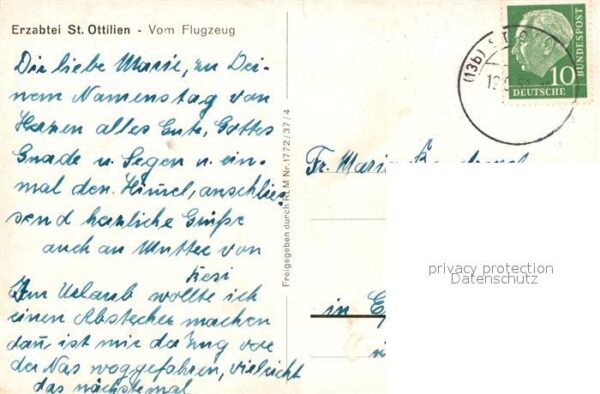 Erzabtei St. Ottilien - Vom Flugzeug
Dir liebe Marie, zu Dei-
nem Namenstag von
Herzen alles Gute, Gottes
Gnade u. Segen u. ein-
mal den Himmel, anschlies
send herzliche Grüße
auch an Mutter von
Resi
Im Urlaub wollte ich
einen Abstecher machen
dann ist mir der Zug vor
der Nas weggefahren, vielleicht
das nächstemal
Freigegeben durch RLM Nr. 1772/37/4
(13b) ST.
DEUTSCHE
BUNDESPOST
10
Fr. Marie
in
privacy protection
Datenschutz